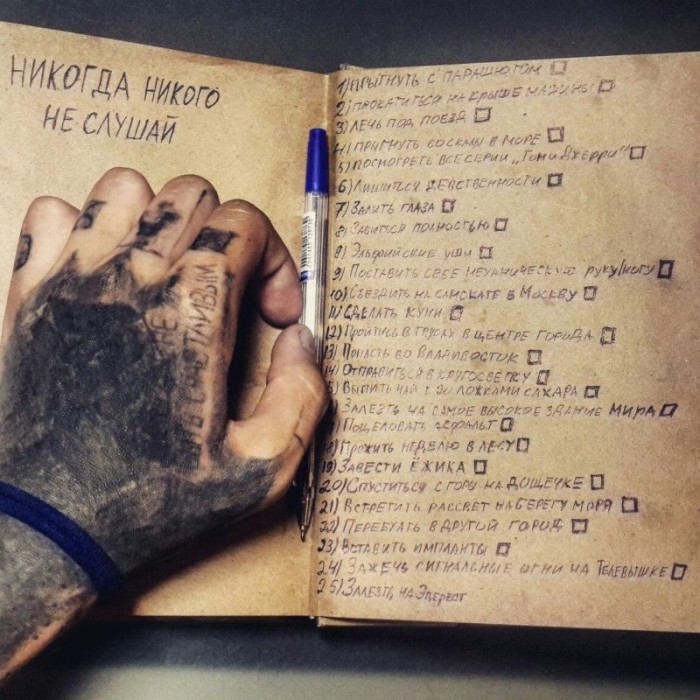 НИКОГДА НИКОГО
НЕ СЛУШАЙ
НЕ
СЧАСТЛИВЫМ
1) ПРЫГНУТЬ С ПАРАШЮТОМ
2) ПРОКАТИТЬСЯ НА КРЫШЕ МАШИНЫ
3) ЛЕЧЬ ПОД ПОЕЗД
4) ПРЫГНУТЬ СО СКАЛЫ В МОРЕ
5) ПОСМОТРЕТЬ ВСЕ СЕРИИ „ТОМ И ДЖЕРРИ"
6) ЛИШИТЬСЯ ДЕВСТВЕННОСТИ
7) ЗАЛИТЬ ГЛАЗА
8) ЗАБИТЬСЯ ПОЛНОСТЬЮ
8) ЭЛЬФИЙСКИЕ УШИ
9) ПОСТАВИТЬ СЕБЕ МЕХАНИЧЕСКУЮ РУКУ/НОГУ
10) СЪЕЗДИТЬ НА САМОКАТЕ В МОСКВУ
11) СДЕЛАТЬ КУНИ
12) ПРОЙТИСЬ В ТРУСАХ В ЦЕНТРЕ ГОРОДА
13) ПОПАСТЬ ВО ВЛАДИВОСТОК
14) ОТПРАВИТЬСЯ В КРУГОСВЕТКУ
5) ВЫПИТЬ ЧАЙ С 20 ЛОЖКАМИ САХАРА
ЗАЛЕЗТЬ НА САМОЕ ВЫСОКОЕ ЗДАНИЕ МИРА
) ПОЦЕЛОВАТЬ АСФАЛЬТ
8) ПРОЖИТЬ НЕДЕЛЮ В ЛЕСУ
19) ЗАВЕСТИ ЁЖИКА
20) СПУСТИТЬСЯ С ГОРЫ НА ДОЩЕЧКЕ
21) ВСТРЕТИТЬ РАССВЕТ НА БЕРЕГУ МОРЯ
22) ПЕРЕЕХАТЬ В ДРУГОЙ ГОРОД
23) ВСТАВИТЬ ИМПЛАНТЫ
24) ЗАЖЕЧЬ СИГНАЛЬНЫЕ ОГНИ НА ТЕЛЕВЫШКЕ
25) ЗАЛЕЗТЬ НА ЭВЕРЕСТ